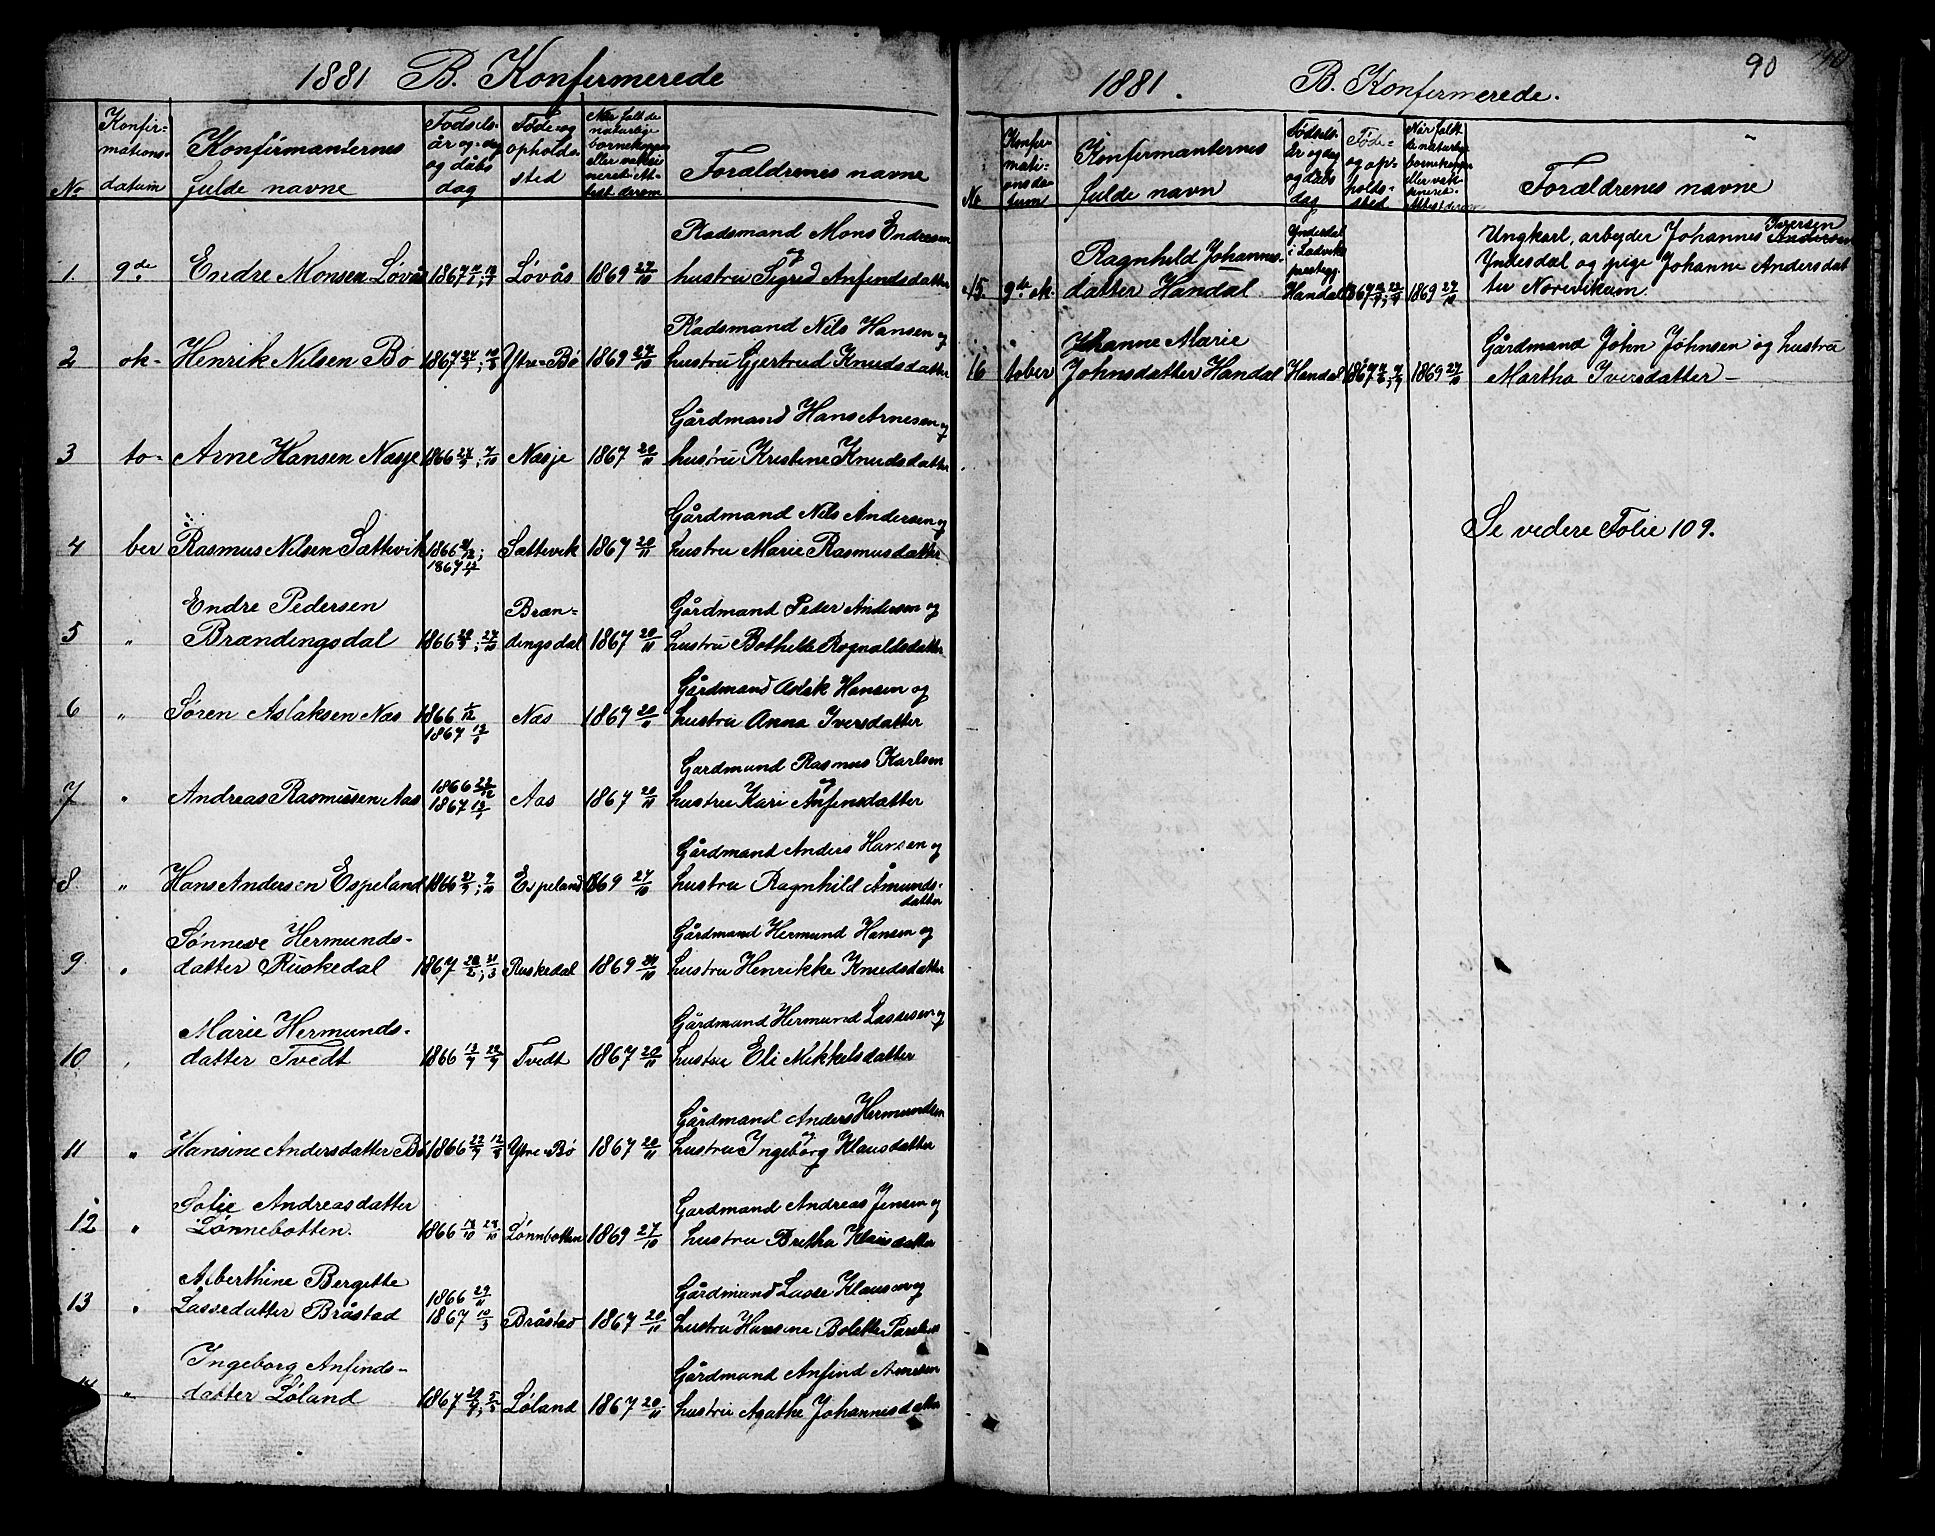 1881 B. Konfirmerede
No
Konfir-
mations-
datum
Konfirmanternes
fulde navne
Fødsels-
år og dag
og dåbs
dag
Føde- og
opholds-
sted
Når havde
naturlige
børnekopper
eller vakci-
neret. At-
test derom
Forældrenes navne
1. 9de Endre Monsen Løvås 1867 Løvås 1869 27/10
Pladsmand Mons Endresen
og
hustru Sigrid Anfindsdatter
2 ok- Henrik Nilsen Bø 1867 Ytre-Bø 1869 27/10
Pladsmand Nils Hansen og
hustru Gjertrud Knudsdatter
3 to- Arne Hansen Næsje 1866 27/9; 7/10 Næsje 1867 20/11
Gårdmand Hans Arnesen og
hustru Kristine Knudsdatter
4 ber Rasmus Nilsen Sættevik 1866
1867 Sættevik 1867 20/11
Gårdmand Nils Andersen og
hustru Marie Rasmusdatter
5 " Endre Pedersen
Brændingsdal 1866 Bræn-
dingsdal 1867 20/11
Gårdmand Peder Andersen og
hustru Bothilde Rognaldsdatter
6 " Søren Aslaksen Næs 1866
1867 Næs 1867 20/11
Gårdmand Aslak Hansen og
hustru Anna Iversdatter
7 " Andreas Rasmussen Aas 1866
1867 Aas 1867 20/11
Gårdmand Rasmus Karlsen
og
hustru Kari Anfinsdatter
8 " Hans Andersen Espeland 1866 Espeland 1869 27/10
Gårdmand Anders Hansen og
hustru Ragnhild Åmunds-
datter
9 " Sønneve Hermunds-
datter Ruskedal 1867 Ruskedal 1869
Gårdmand Hermund Hansen og
hustru Henrikke Knudsdatter
10 " Marie Hermunds-
datter Tvedt 1866 Tvedt 1867 20/11
Gårdmand Hermund Lassesen og
hustru Eli Mikkelsdatter
11 " Hansine Andersdatter Bø 1866 Ytre-Bø 1867 20/11
Gårdmand Anders Hermundsen
og
hustru Ingeborg Klausdatter
12 " Sofie Andreasdatter
Lønnebotten. 1866 Lønnbotten 1869 27/10
Gårdmand Andreas Jensen og
hustru Brethe Klausdatter
13 " Alberthine Bergitte
Lassedatter Bråstad 1866 29/11
1867 10/3 Bråstad 1867 20/11
Gårdmand Lasse Klausen og
hustru Hansine Bolette
14 " Ingeborg Anfinds-
datter Løland 1867 Løland 1867 20/11
Gårdmand Anfind Arnesen
hustru Agathe Johannesdatter
90
1881. B. Konfirmerede.
No
Konfir-
mati-
onsda-
tum
Konfirmanternes
fulde navn
Fødsels-
år og dag
og dåbs
dag
Føde-
og op-
holds-
sted
Når havdt
de naturlige
børnekopper
eller vak-
cineret.
Attest derom
Forældrenes navne
15 9de ok- Ragnhild Johannes-
datter Handal
Ynderdal
i Ladviks
prestegj.
Handal 1867 1869 27/10
Ungkarl, arbeyder Johannes Iversen Andersen
Yndesdal og pige Johanne Andersdat
ter Norevikum.
16 tober Johanne Marie
Johnsdatter Handal Handal 1867 1869 27/10
Gårdmand John Johnsen og hustru
Martha Iversdatter
Se videre Folie 109.